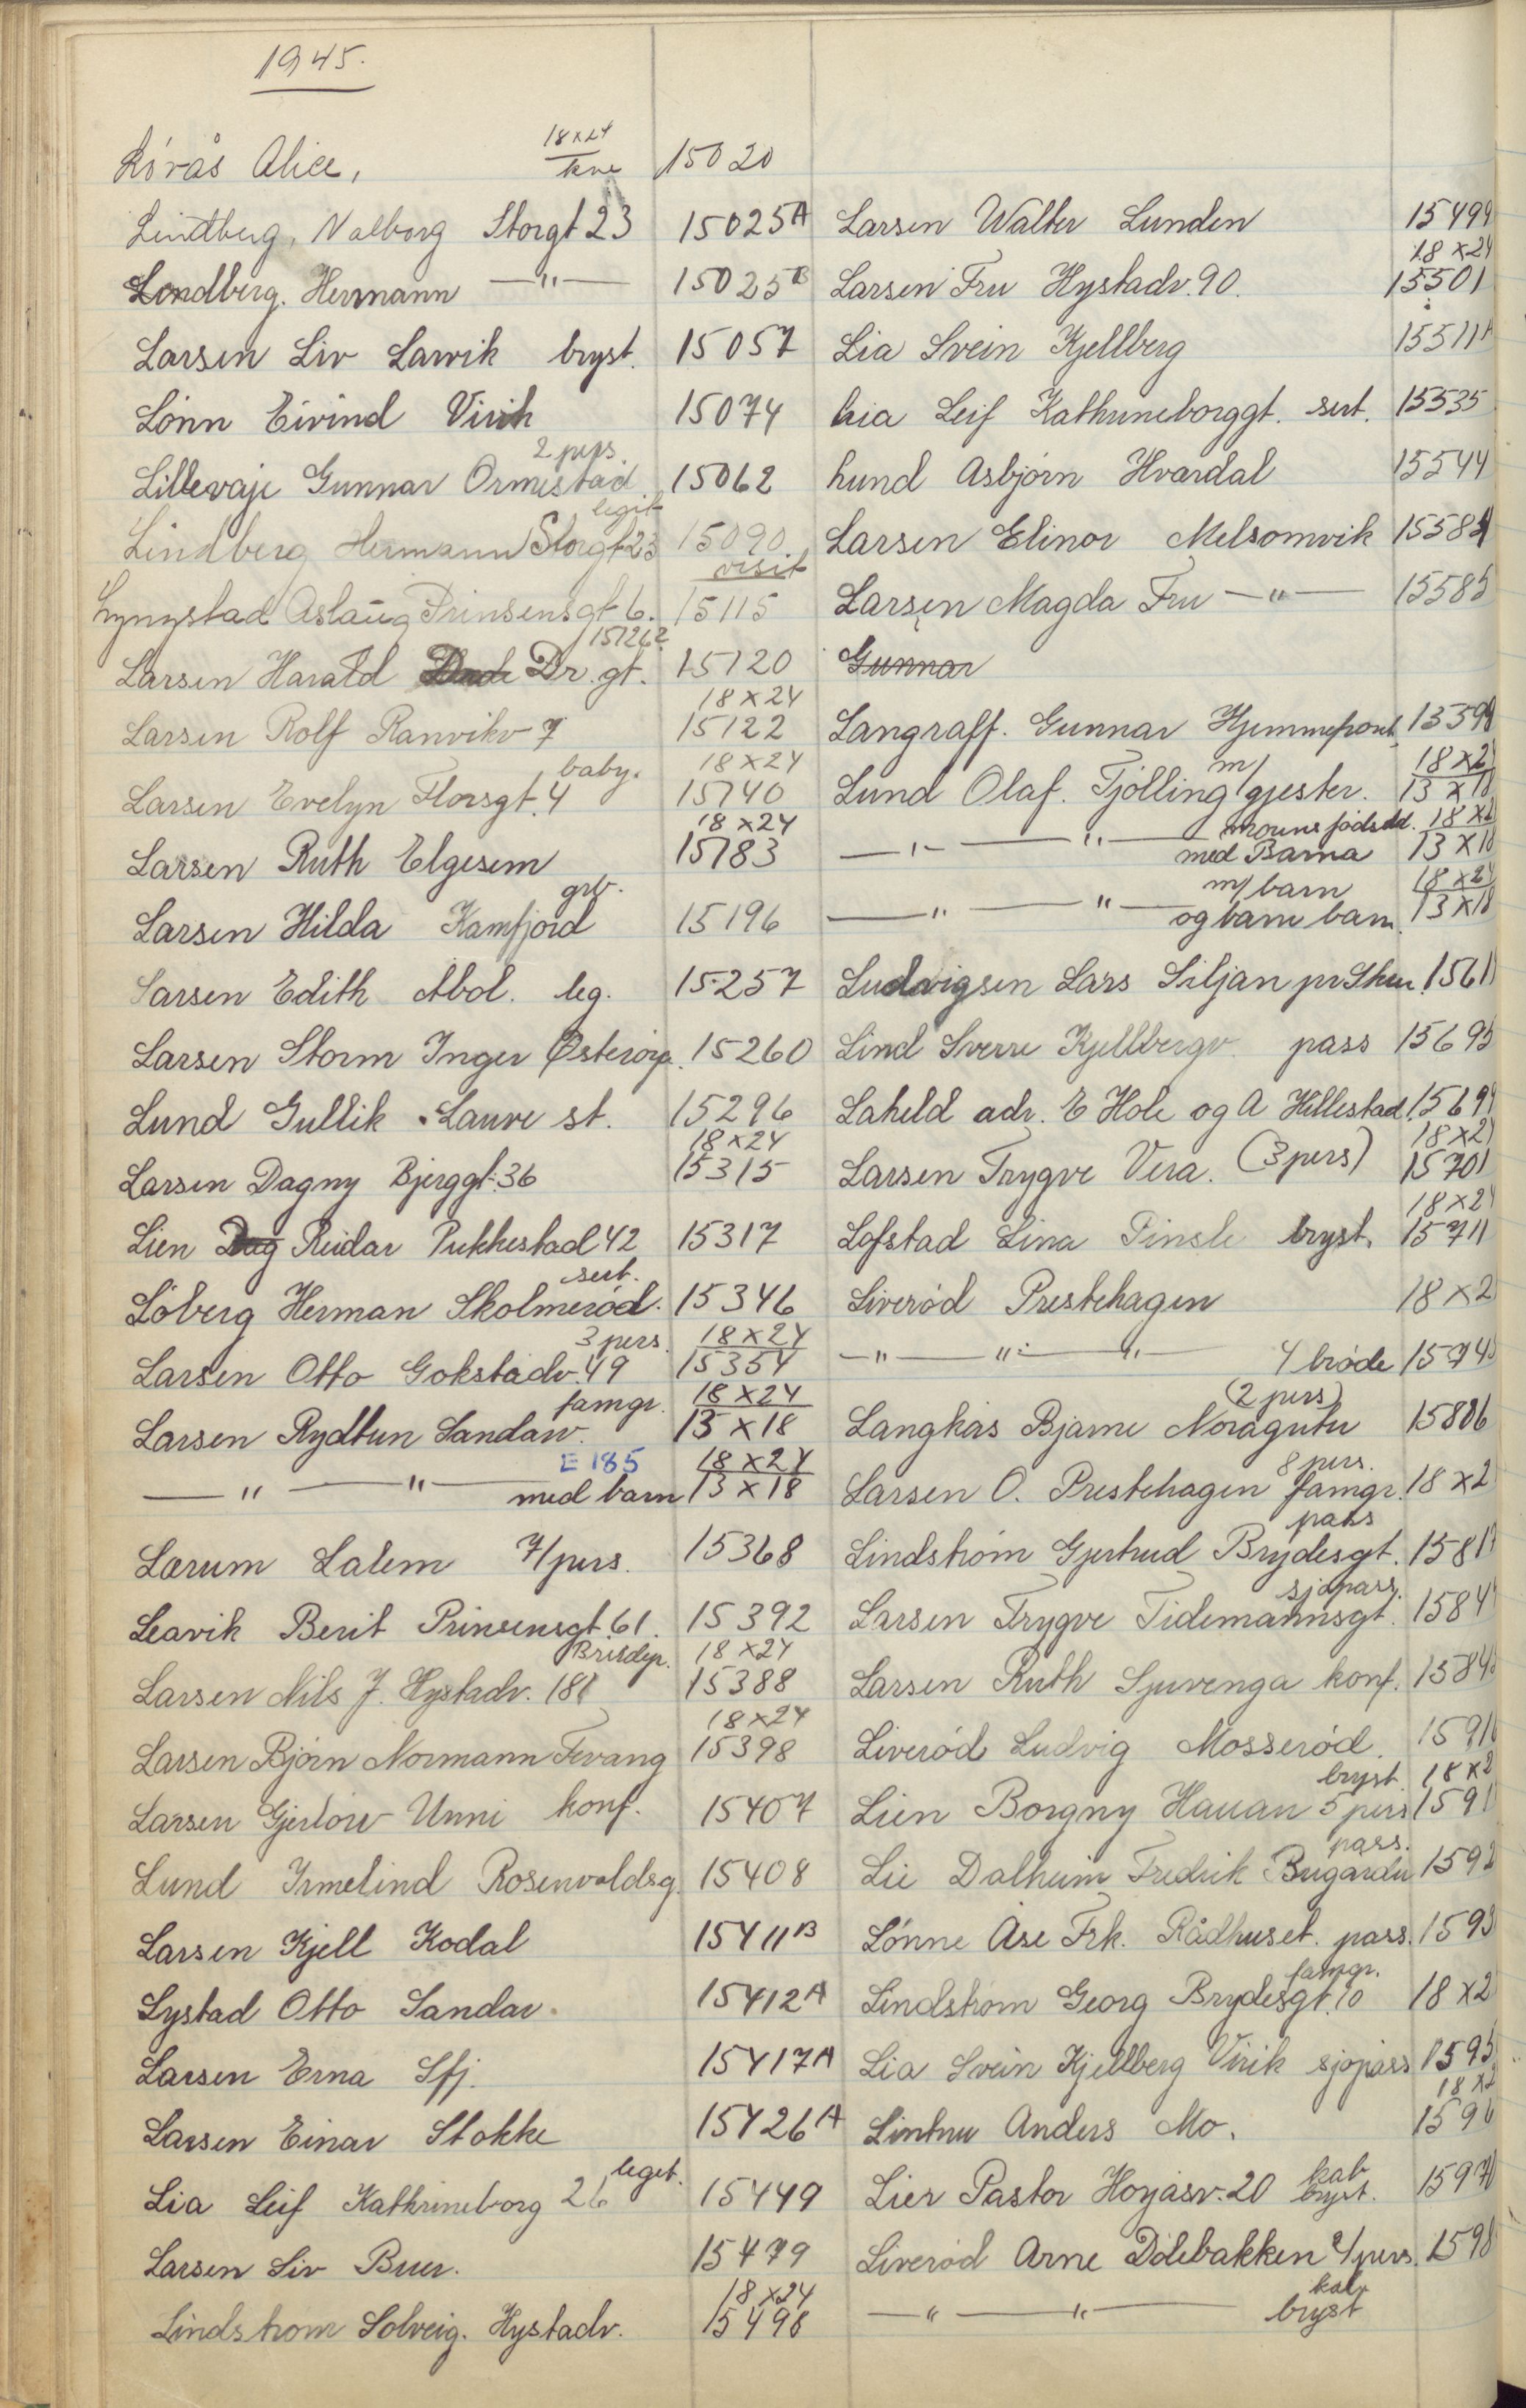 1945.
Lórås Alice, 18x24 kne 15020
Lindberg, Valborg Storgt 23 15025A
Lindberg. Hermann —"— 15025B
Larsen Liv Larvik bryst. 15057
Lónn Eivind Virik 15074
Lillevaje Gunnar Ormestad 2 pers. 15062
Lindberg Hermann Storgt 23 legit 15090
Lyngstad Aslaug Prinsensgt 6. visit 15115
Larsen Harald Dr. gt. 151262 15120
Larsen Rolf Ranvikv 7 18x24 15122
Larsen Evelyn Florsgt. 4 baby. 18x24 15140
Larsen Ruth Elgesem 18x24 15183
Larsen Hilda Kamfjord grb. 15196
Larsen Edith Abol. leg. 15257
Larsen Storm Inger Østerøya. 15260
Lund Gullik Lauve st. 15296
Larsen Dagny Bjerggt. 36 18x24 15315
Lien Dag Reidar Pukkestad 42 15317
Löberg Herman Skolmeród. sert. 15346
Larsen Otto Gokstadv. 49 3 pers. 18x24 15354
Larsen Rydtun Sandarv. famgr. 18x24 13x18
—"—"— E 185 med barn 18x24 13x18
Lærum Salem 7/pers. 15368
Leavik Berit Prinsensgt 61. 15392
Larsen Nils J. Hystadv. 181 Brudep. 18x24 15388
Larsen Bjórn Normann Fevang 18x24 15398
Larsen Gjerlów Unni konf. 15407
Lund Irmelind Rosenvoldsg. 15408
Larsen Kjell Kodal 15411B
Lystad Otto Sandar. 15412A
Larsen Erna Sfj. 15417A
Larsen Einar Stokke 15426A
Lia Leif Kathrineborg 26 leget. 15449
Larsen Liv Buer. 15479
Lindstrom Solveig. Hystadv. 18x24 15498
Larsen Walter Lunden 15499
Larsen Fru Hystadv. 90. 18x24 15501
Lia Svein Kjellberg 15511A
Lia Leif Kathrineborggt. sert. 15535
Lund Asbjórn Hvardal 15544
Larsen Elinor Melsomvik 15584
Larsen Magda Fru —"— 15585
Gunnar
Langraff. Gunnar Hjemmefront 1559
Lund Olaf. Tjólling m/ gjester. 18x2 13x18
—"—"— morens födsdd. med Barna 18x2 13x18
—"—"— m/ barn og barnebarn. 18x24 13x18
Ludvigsen Lars Siljan pr Skien 1561
Lind Sverre Kjellbergv. pass 15695
Laheld adr. E Hole og A Hillestad 1569
Larsen Trygve Vera. (3 pers) 18x2 15701
Lofstad Lina Pinsle bryst. 18x24 15711
Liveród Prestehagen 18x2
—"—"—"— 4 bróde 1574
Langkås Bjarne Noragutu (2 pers) 15806
Larsen O. Prestehagen 8 pers. famgr. 18x2
Lindstrom Gjertrud Brydesgt. pass 1581
Larsen Trygve Tidemannsgt. sjópass. 1584
Larsen Ruth Sjuvenga konf. 1584
Liveród Ludvig Mosseród. 1591
Lien Borgny Hauan 5 pers bryst. 18x2 1591
Lie Dalheim Fredrik Bugården pass. 1592
Lónne Åse Frk. Rådhuset. pass. 1593
Lindstrom Georg Brydesgt. 10 famgr. 18x2
Lia Svein Kjellberg Virik sjópass 1595
Anders Mo. 18x2 159
Lier Pastor Hoyjåsv. 20 kab bryst. 1597
Liveród Arne Dólebakken 2/pers. 1598
—"—"— kab bryst